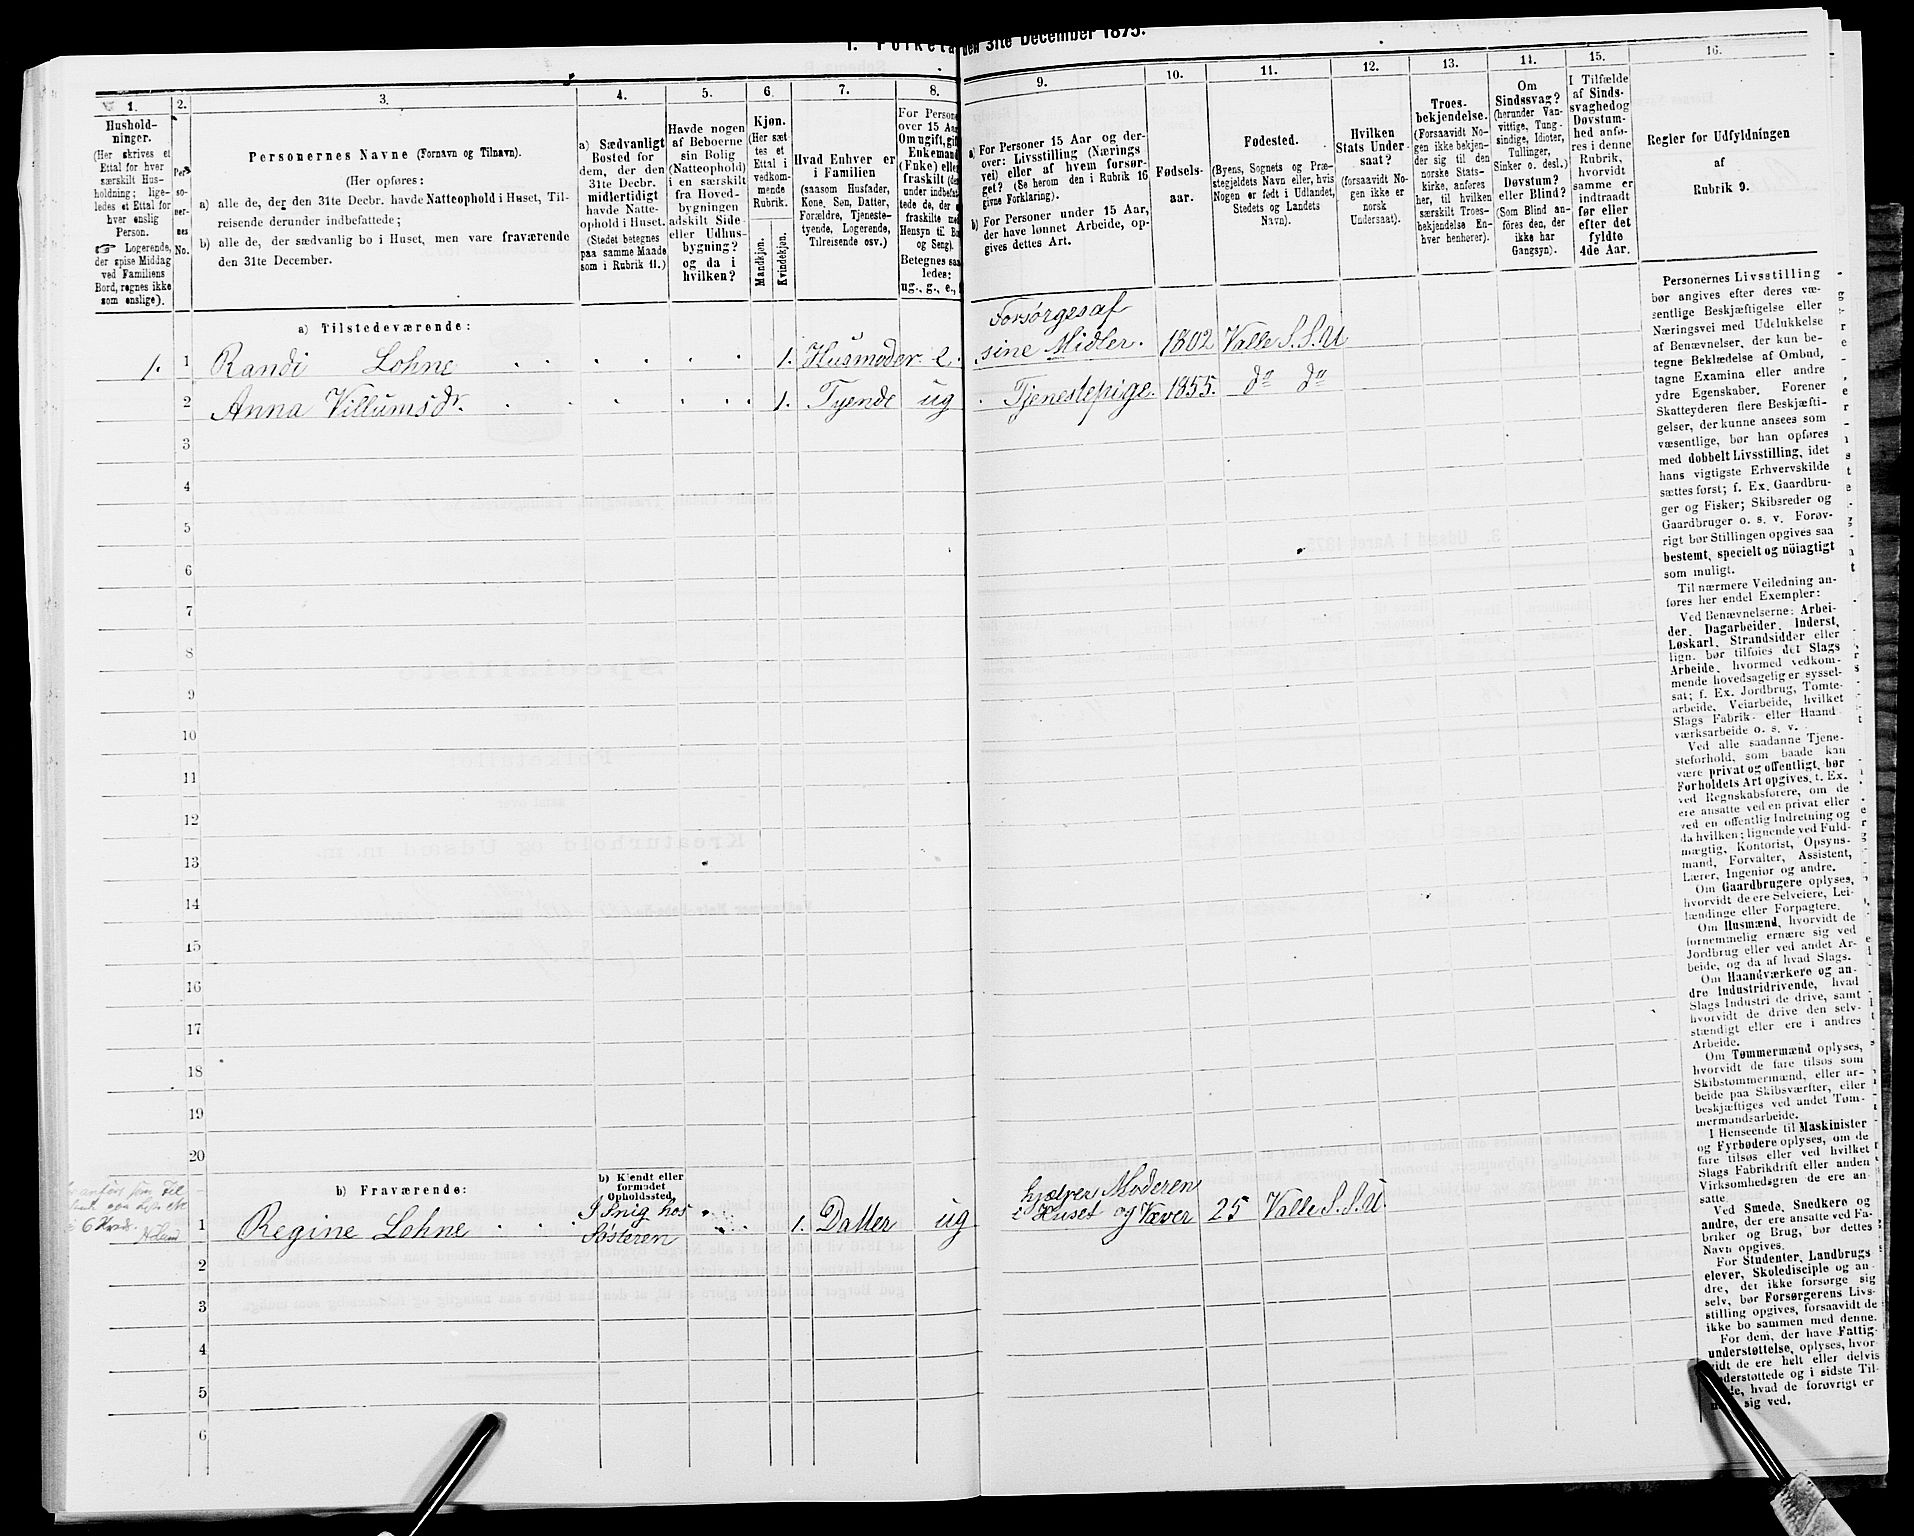 1. Folketa den 31te December 1875.
1.
Hushold-
ninger.
(Her skrives et
Ettal for hver
særskilt Hus-
holdning; lige-
ledes et Ettal for
hver enslig
Person.
☞ Logerende,
der spise Middag
ved Familiens
Bord, regnes ikke
som enslige).
2.
Per-
so-
ner-
nes
No.
3.
Personernes Navne (Fornavn og Tilnavn).
(Her opføres:
a) alle de, der den 31te Decbr. havde Natteophold i Huset, Til-
reisende derunder indbefattede;
b) alle de, der sædvanlig bo i Huset, men vare fraværende
den 31te December.
4.
a) Sædvanligt
Bosted for
dem, der den
31te Decbr.
midlertidigt
havde Natte-
ophold i Huset.
(Stedet betegnes
paa samme Maade
som i Rubrik 11.)
5.
Havde nogen
af Beboerne
sin Bolig
(Natteophold)
i en særskilt
fra Hoved-
bygningen
adskilt Side-
eller Udhus-
bygning?
og da i
hvilken?
6.
Kjøn.
(Her sæt-
tes et
Ettal i
vedkom-
mende
Rubrik.
Mandkjøn.
Kvindekjøn.
7.
Hvad Enhver er
i Familien
(saasom Husfader,
Kone, Søn, Datter,
Forældre, Tjeneste-
tyende, Logerende,
Tilreisende osv.)
8.
For Persone
over 15 Aa
Om ugift, gift
Enkemand
(Enke) elle
fraskilt (de
under indbefat
tede de, der e
fraskilte me
Hensyn til Bo
og Seng).
Betegnes saa
ledes:
ug., g., e.,
9.
a) For Personer 15 Aar og der-
over: Livsstilling (Nærings-
vei) eller af hvem forsør-
get? (Se herom den i Rubrik 16
givne Forklaring).
b) For Personer under 15 Aar,
der have lønnet Arbeide, op-
gives dettes Art.
10.
Fødsels-
aar.
11.
Fødested.
(Byens, Sognets og Præ-
stegjeldets Navn eller, hvis
Nogen er født i Udlandet,
Stedets og Landets
Navn).
12.
Hvilken
Stats Under-
saat?
(forsaavidt No-
gen ikke er
norsk
Undersaat).
13.
Troes-
bekjendelse.
(Forsaavidt No-
gen ikke bekjen-
der sig til den
norske Stats-
kirke, anføres
her, til hvilken
særskilt Troes-
bekjendelse En-
hver henhører).
14.
Om
Sindssvag?
(herunder Van-
vittige, Tung-
sindige, Idioter,
Tullinger,
Sinker o. desl.)
Døvstum?
eller Blind?
(Som Blind an-
føres den, der
ikke har
Gangsyn).
15.
I Tilfælde
af Sinds-
svaghedog
Døvstum-
hed anfø-
res i denne
Rubrik,
hvorvidt
samme er
indtraadt
før eller
efter det
fyldte
4de Aar.
16.
Regler for Udfyldningen
af
Rubrik 9.
a) Tilstedeværende:
1. 1 Randi Lohne 1. Husmoder e. Forsørges af sine Midler. 1802 Valle S.S.U
2 Anna Villumsdr. 1. Tyende ug Tjenestepige. 1855. do do
3
4
5
6
7
8
9
10
11
12
13
14
15
16
17
18
19
20
b) Fraværende:
b) Kjendt eller
formodet
Opholdssted.
1 Regine Lohne I Snig hos Søsteren 1. Datter ug hjælper Moderen i Huset og Væver 25 Valle S.S.U.
2
3
4
5
6
Personernes Livsstilling
bør angives efter deres væ-
sentlige Beskjæftigelse eller
Næringsvei med Udelukkelse
af Benævnelser, der kun be-
tegne Beklædelse af Ombud,
tagne Examina eller andre
ydre Egenskaber. Forener
Skatteyderen flere Beskjæfti-
gelser, der kunne ansees som
væsentlige, bør han opføres
med dobbelt Livsstilling, idet
hans vigtigste Erhvervskilde
sættes først; f. Ex. Gaardbru-
ger og Fisker; Skibsreder og
Gaardbruger o. s. v. Forøv-
rigt bør Stillingen opgives saa
bestemt, specielt og nöiagtigt
som muligt.
Til nærmere Veiledning an-
føres her endel Exempler:
Ved Benævnelserne: Arbei-
der, Dagarbeider, Inderst,
Løskarl, Strandsidder eller
lign. bør tilføies det Slags
Arbeide, hvormed vedkom-
mende hovedsagelig er syssel-
sat; f. Ex. Jordbrug, Tomte-
arbeide, Veiarbeide, hvilket
Slags Fabrik- eller Haand-
værksarbeide o. s. v.
Ved alle saadanne Tjene-
steforhold, som baade kan
være privat og offentligt, bør
Forholdets Art opgives, f. Ex.
ved Regnskabsførere, om de
ere ansatte ved en privat eller
ved en offentlig Indretning og
da hvilken; lignende ved Fuld-
mægtig, Kontorist, Opsyns-
mand, Forvalter, Assistent,
Lærer, Ingeniør og andre.
Om Gaardbrugere oplyses,
hvorvidt de ere Selveiere, Lei-
lændinge eller Forpagtere.
Om Husmænd, hvorvidt de
fornemmelig ernære sig ved
Jordbrug eller ved andet Ar-
beide, og da af hvad Slags.
Om Haandværkere og an-
dre Industridrivende, hvad
Slags Industri de drive, samt
hvorvidt de drive den selv-
stændigt eller ere i andres
Arbeide.
Om Tømmermænd oplyses,
hvorvidt de fare tilsøs som
Skibstømmermænd, eller ar-
beide paa Skibsværfter, eller
beskjæftiges ved andet Tøm-
mermandsarbeide.
I Henseende til Maskinister
og Fyrbødere oplyses, om de
fare tilsøs eller ved hvilket
Slags Fabrikdrift eller anden
Virksomhedsgren de ere an-
satte.
Ved Smede, Snedkere og
andre, der ere ansatte ved Fa-
briker og Brug, bør dettes
Navn opgives.
For Studenter, Landbrugs-
elever, Skoledisciple og an-
dre, der ikke forsørge sig
selv, bør Forsørgerens Livs-
stilling opgives, forsaavidt de
ikke bo sammen med denne.
For dem, der have Fattig-
understøttelse, oplyses, hvor-
vidt de ere helt eller delvis
understøttede og i sidste Til-
de, hvad de forøvrigt er
sig ved.